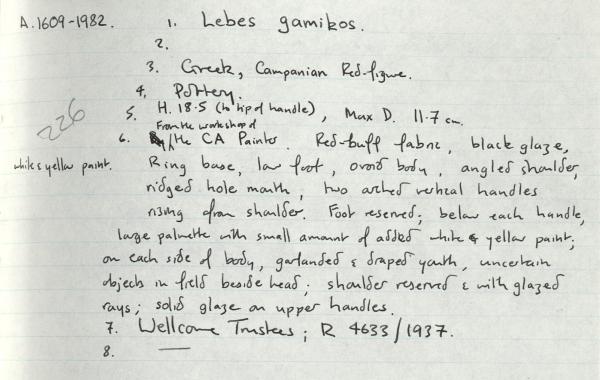 A.1609-1982. 1. Lebes gamikos.
2.
3. Greek, Campanian Red-figure.
4. Pottery.
5. H. 18.5 (to tip of handle), Max D. 11.7 cm.
From the workshop of
226
6. /the CA Painter. Red-buff fabric, black glaze,
white & yellow paint. Ring base, low foot, ovoid body, angled shoulder,
ridged hole mouth, two arched vertical handles
rising from shoulder. Foot reserved; below each handle,
large palmette with small amount of added white & yellow paint;
on each side of body, garlanded & draped youth, uncertain
objects in field beside head; shoulder reserved & with glazed
rays; solid glaze on upper handles.
7. Wellcome Trustees; R 4633/1937.
8. —